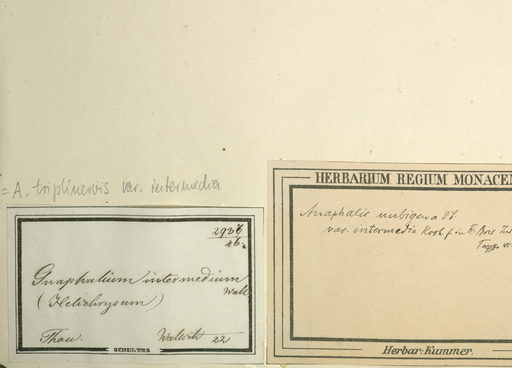 = A. triplinervis var. intermedia
2936
46
Gnaphalium intermedium
Wall
(Helichrysum)
Thou. Wallich 22
SCHULTES
HERBARIUM REGIUM MONACEN
Anaphalis nubigena
var. intermedia Hook f. in
Herbar: Kummer.